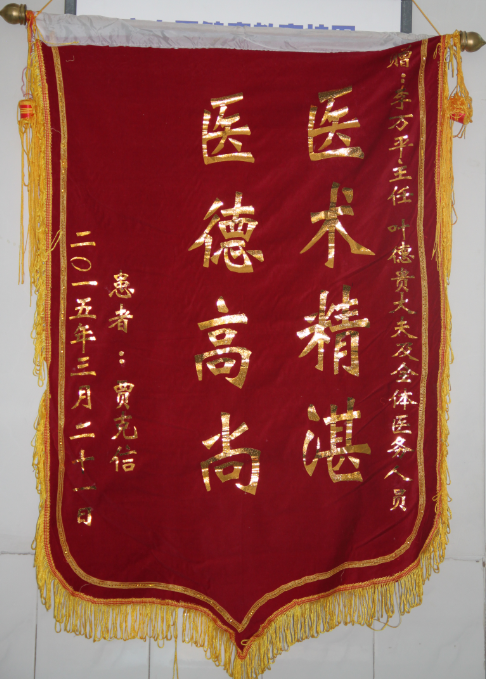 赠：李万平主任 叶德贵大夫及全体医务人员
医术精湛
医德高尚
患者：贾克信
二〇一五年三月二十一日